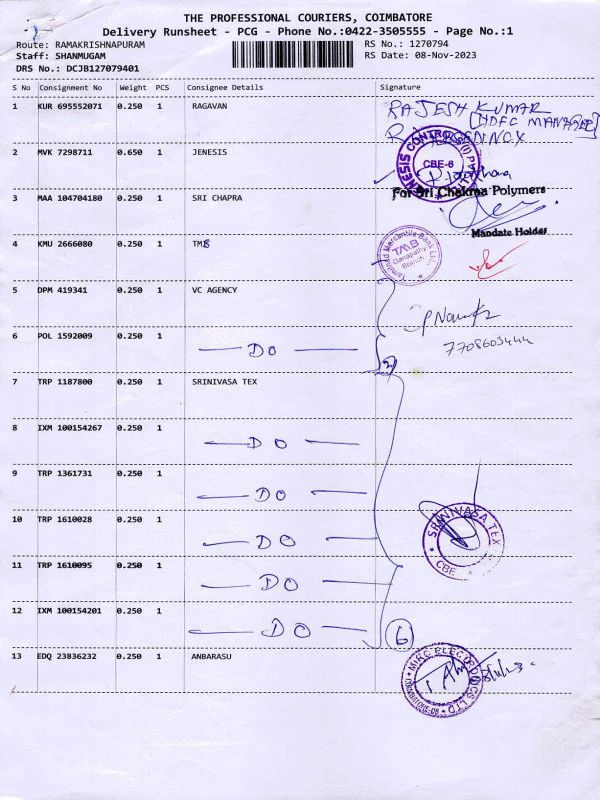 THE PROFESSIONAL COURIERS, COIMBATORE
Delivery Runsheet - PCG - Phone No.:0422-3505555 - Page No.:1
Route: RAMAKRISHNAPURAM RS No.: 1270794
Staff: SHANMUGAM RS Date: 08-Nov-2023
DRS No.: DCJB127079401
S No Consignment No Weight PCS Consignee Details Signature
1 KUR 695552071 0.250 1 RAGAVAN RAJESH KUMAR
[HDFC MANAGER]
2 MVK 7298711 0.650 1 JENESIS
GENESIS CONTROL (I) CBE-6
3 MAA 104704180 0.250 1 SRI CHAPRA For Sri Chakraa Polymers
Mandate Holder
4 KMU 2666080 0.250 1 TMB
Tamilnad Mercantile Bank Ltd., TMB Ganapathy Branch
5 DPM 419341 0.250 1 VC AGENCY
6 POL 1592009 0.250 1 DO 7708603444
2
7 TRP 1187800 0.250 1 SRINIVASA TEX
8 IXM 100154267 0.250 1 DO
9 TRP 1361731 0.250 1 DO
10 TRP 1610028 0.250 1 DO
SRINIVASA TEX CBE
11 TRP 1610095 0.250 1 DO
12 IXM 100154201 0.250 1 DO 6
13 EDQ 23836232 0.250 1 ANBARASU
MIRC ELECTRONICS LTD COIMBATORE-06